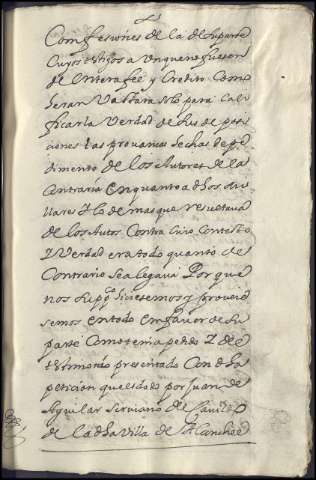 Comfesiones de la dha parte
Cuyos testigos a unque no fuesen
de entera fee y Credito Como
heran Vastava solo para Cali
ficar la Verdad de sus depossi
ciones las provanzas fechas de pe
dimento de los Autores de la
Contraria en quanto a dhos
y lo demas que resultava
de los Autos Contra
y Verdad era todo quanto de
Contrario se alegava Por que
nos supp.co hiciesemos y proveie
semos en todo em favor de su
parte Como tenia pedido y de el
testimonio presentado Con dha
peticion que es dado por Juan de
Aguilar escrivano de Cavildo
de la dha Villa de